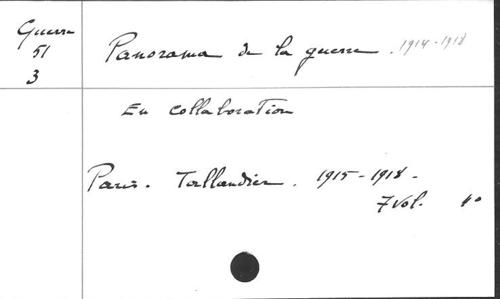 Guerre
51
3
Panorama de la guerre. 1914-1918
En collaboration
Paris. Tallandier. 1915-1918-
7 Vol. 4°